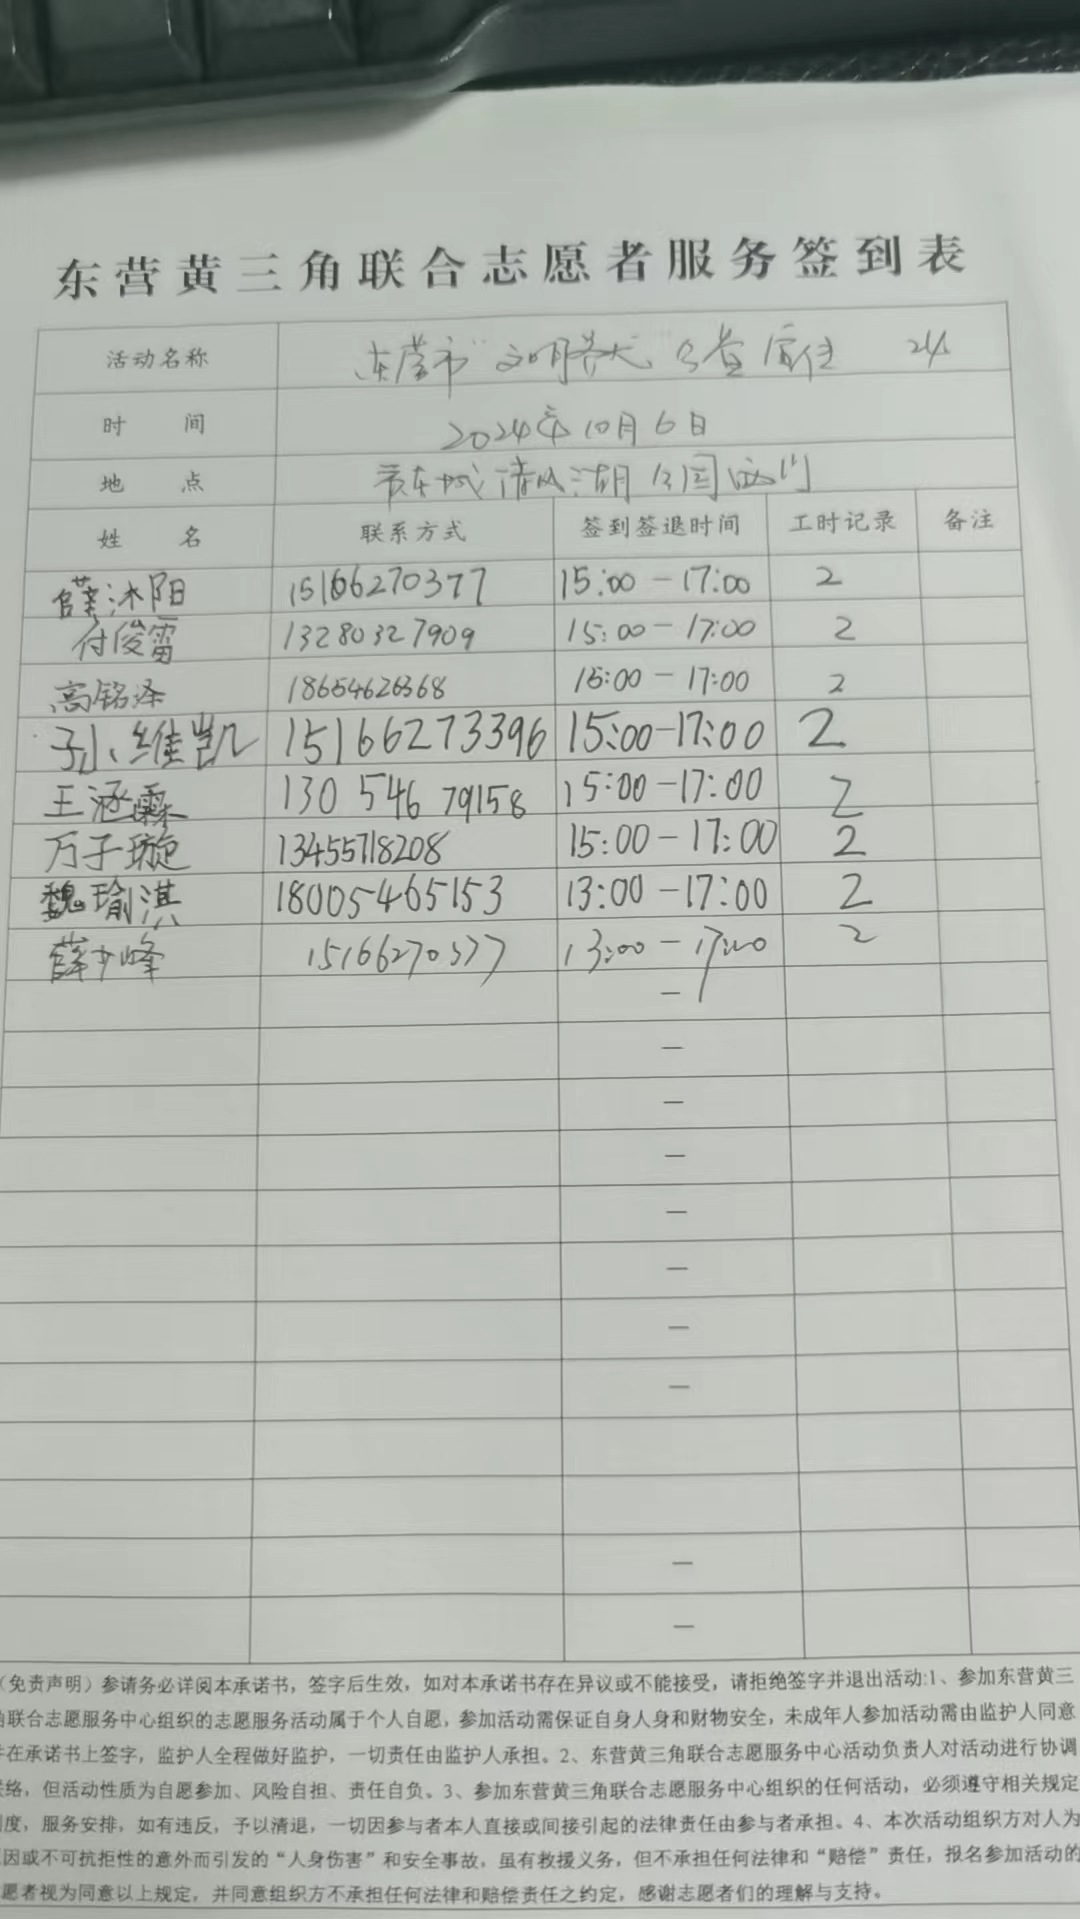 东营黄三角联合志愿者服务签到表
活动名称 东营市"文明养犬 公益宣传 24
时 间 2024年10月6日
地 点 东城清风湖公园西门
姓 名 联系方式 签到签退时间 工时记录 备注
薛沐阳 15166270377 15:00-17:00 2
付俊雷 13280327909 15:00-17:00 2
高铭泽 18654626368 15:00-17:00 2
孙维凯 15166273396 15:00-17:00 2
王涵霖 130 546 79158 15:00-17:00 2
万子璇 13455718208 15:00-17:00 2
魏瑜淇 18005465153 13:00-17:00 2
薛少峰 15166270377 13:00-17:00 2
—
—
—
—
—
—
—
—
—
—
(免责声明)参请务必详阅本承诺书,签字后生效,如对本承诺书存在异议或不能接受,请拒绝签字并退出活动:1、参加东营黄三
角联合志愿服务中心组织的志愿服务活动属于个人自愿,参加活动需保证自身人身和财物安全,未成年人参加活动需由监护人同意
并在承诺书上签字,监护人全程做好监护,一切责任由监护人承担。2、东营黄三角联合志愿服务中心活动负责人对活动进行协调
联络,但活动性质为自愿参加、风险自担、责任自负。3、参加东营黄三角联合志愿服务中心组织的任何活动,必须遵守相关规定
制度,服务安排,如有违反,予以清退,一切因参与者本人直接或间接引起的法律责任由参与者承担。4、本次活动组织方对人为
原因或不可抗拒性的意外而引发的"人身伤害"和安全事故,虽有救援义务,但不承担任何法律和"赔偿"责任,报名参加活动的
志愿者视为同意以上规定,并同意组织方不承担任何法律和赔偿责任之约定,感谢志愿者们的理解与支持。